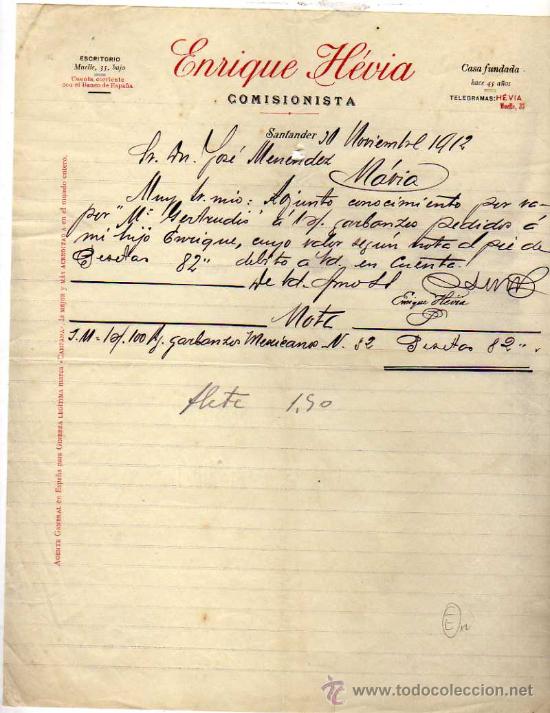 ESCRITORIO
Muelle, 35, bajo
Cuenta corriente
con el Banco de España
Enrique Hévia
COMISIONISTA
Casa fundada
hace 45 años
TELEGRAMAS: HÉVIA
Muelle, 35
Santander 30 Noviembre 1912
Sr. Dn. José Menendez
Návia
Muy Sr. mio: Adjunto conocimiento por va-
por "Mª Gertrudis" á garbanzos pedidos á
mi hijo Enrique, cuyo valor segun nota al pié de
Pesetas 82" debito a Vd. en cuenta.
De Vd. 
Enrique Hévia
Nota
J.M= 100 K. garbanzos Mexicanos N. 82 Pesetas 82"
flete 1,50
AGENTE GENERAL EN ESPAÑA PARA GINEBRA LEGÍTIMA MARCA «CAMPANA», LA MEJOR Y MÁS ACREDITADA EN EL MUNDO ENTERO.
www.todocoleccion.net